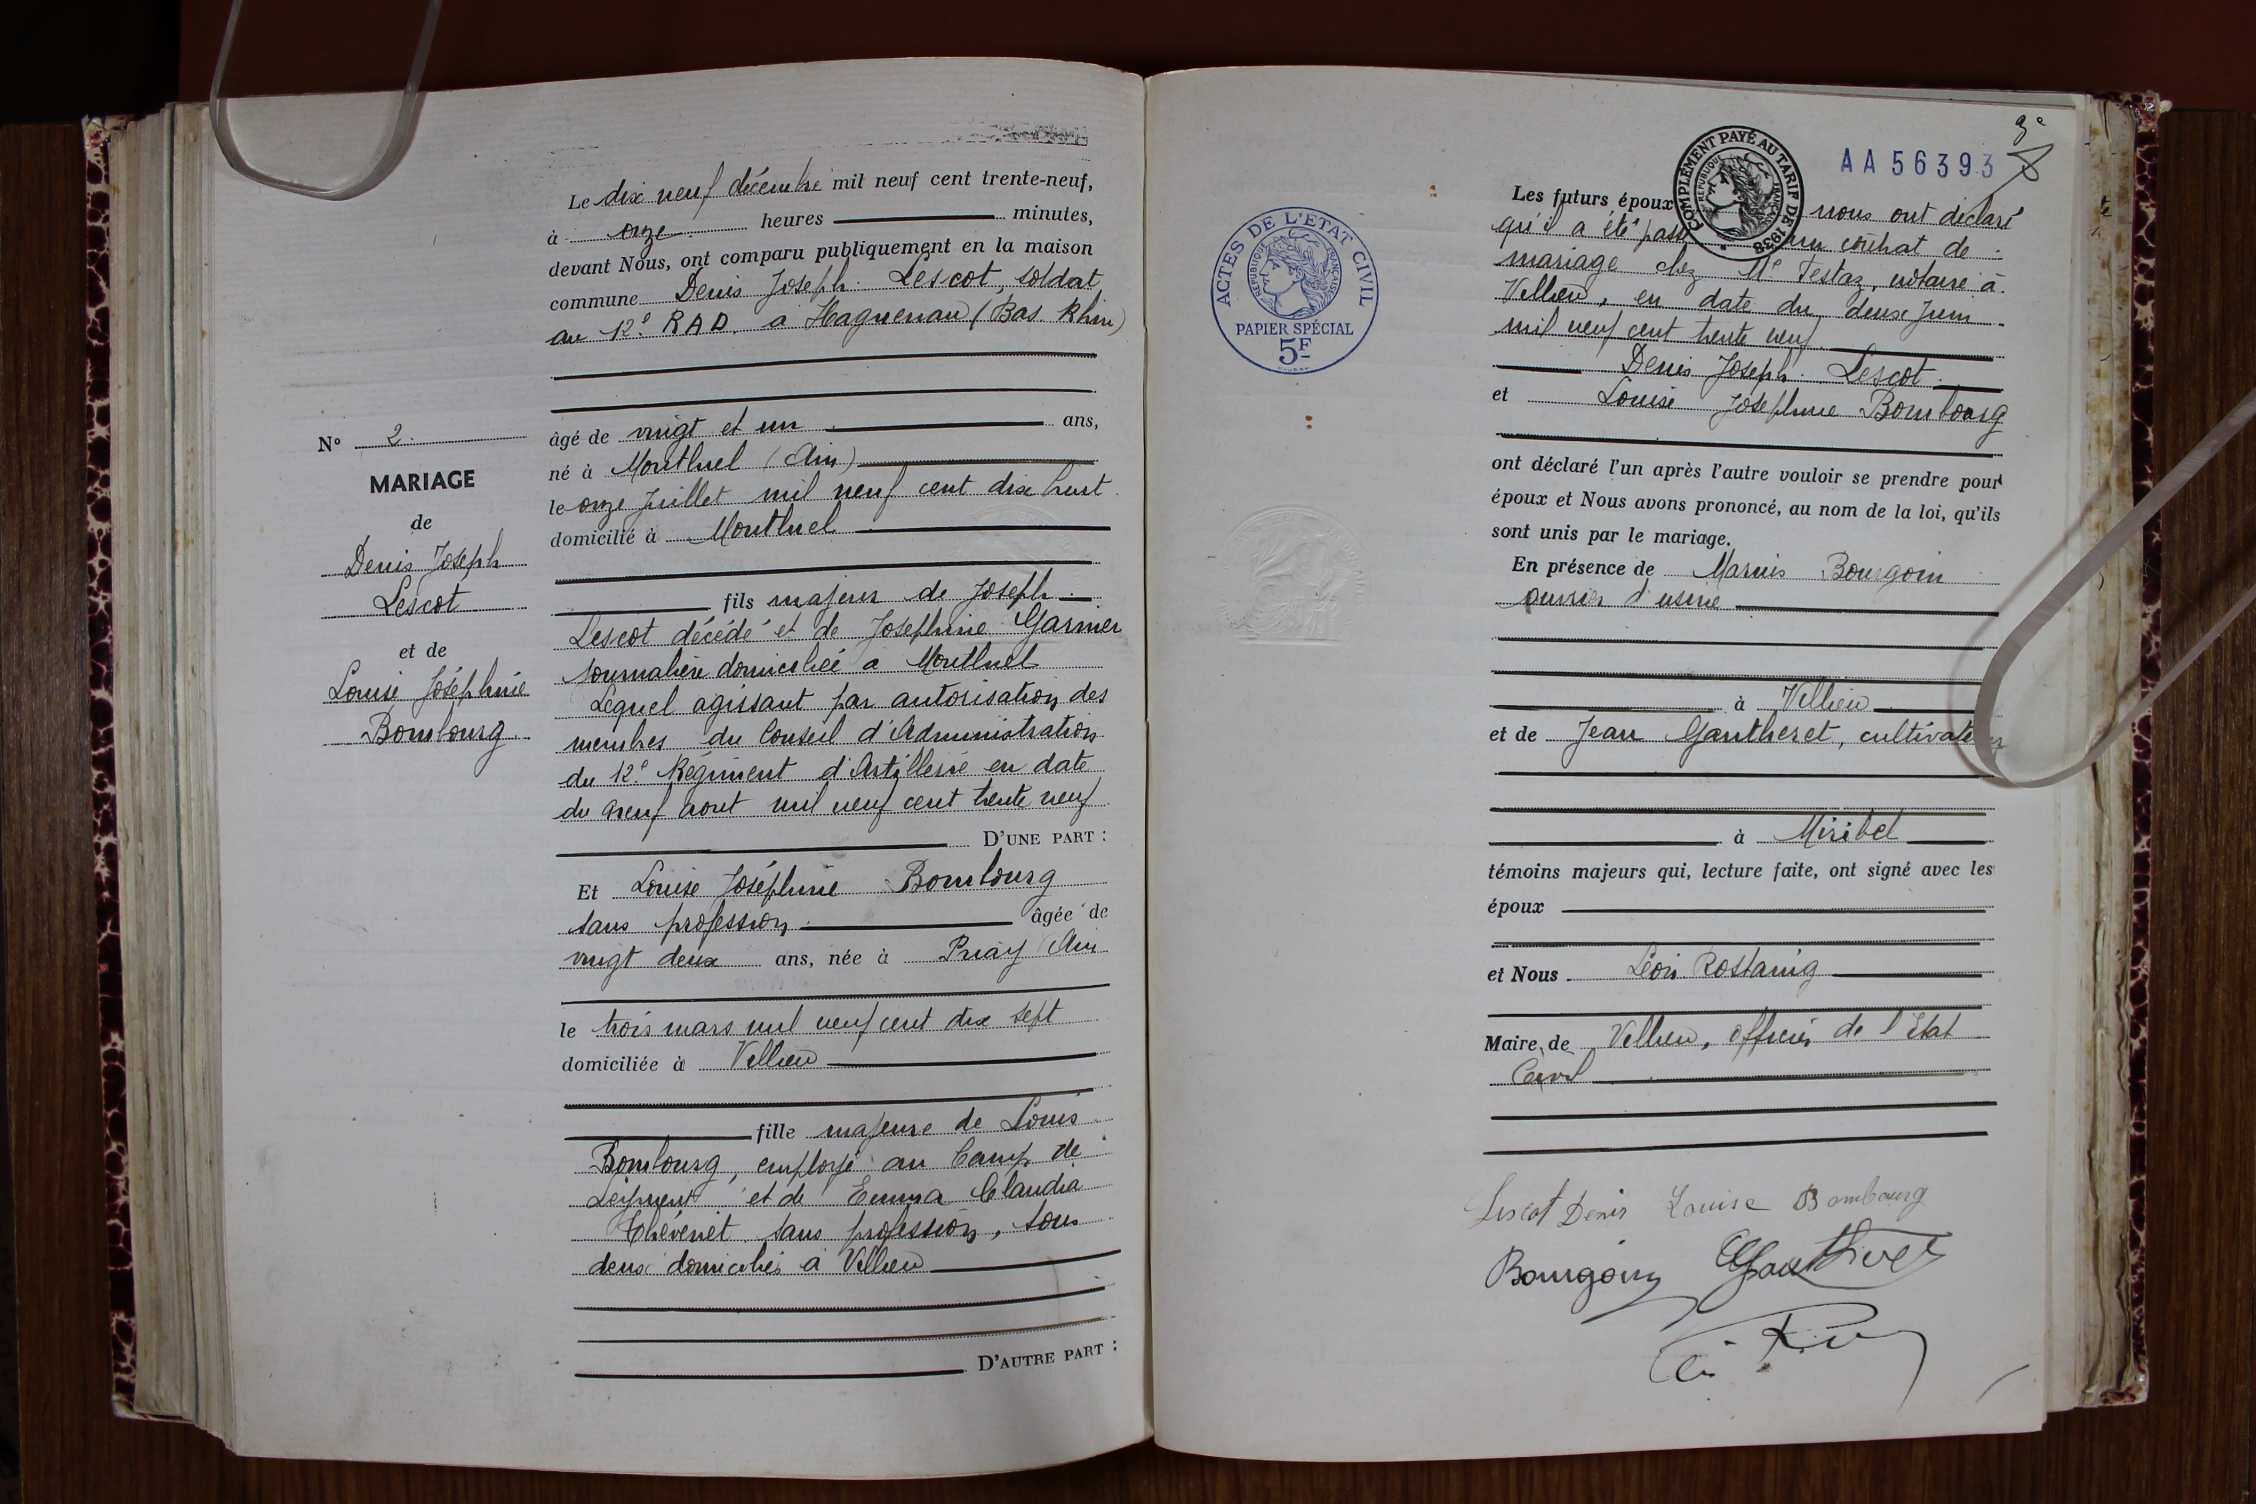 Le dix neuf décembre mil neuf cent trente-neuf,
à onze heures minutes,
devant Nous, ont comparu publiquement en la maison
commune Denis Joseph Lescot, soldat
au 12e R A D. a Haguenau (Bas Rhin)
âgé de vingt et un ans,
né à Montluel (Ain)
le onze juillet mil neuf cent dix huit
domicilié à Montluel
fils majeur de Joseph
Lescot décédé et de Joséphine Garnier
journalière domiciliée a Montluel
Lequel agissant par autorisation des
membres du Conseil d'Administration
du 12e Régiment d'Artillerie en date
du neuf aout mil neuf cent trente neuf
D'UNE PART :
Et Louise Joséphine Bombourg
sans profession âgée de
vingt deux ans, née à Priay (Ain
le trois mars mil neuf cent dix sept
domiciliée à Villieu
fille majeure de Louis
Bombourg, employé au Camp de
Leyment et de Emma Claudia
Thévenet sans profession, tous
deux domiciliés à Villieu
D'AUTRE PART :
N° 2.
MARIAGE
de
Denis Joseph
Lescot
et de
Louise Joséphine
Bombourg
ACTES DE L'ETAT CIVIL
REPUBLIQUE FRANÇAISE
PAPIER SPÉCIAL
5F
COMPLÉMENT PAYÉ AU TARIF DE 1938
REPUBLIQUE FRANÇAISE
AA 56393
Les futurs époux nous ont déclaré
qu'il a été passé un contrat de
mariage chez Me Testaz, notaire à
Villieu, en date du deux Juin
mil neuf cent trente neuf
Denis Joseph Lescot
et Louise Joséphine Bombourg
ont déclaré l'un après l'autre vouloir se prendre pour
époux et Nous avons prononcé, au nom de la loi, qu'ils
sont unis par le mariage.
En présence de Marius Bourgoin
ouvrier d'usine
à Villieu
et de Jean Gautheret, cultivateur
à Miribel
témoins majeurs qui, lecture faite, ont signé avec les
époux
et Nous Léon Rostaing
Maire de Villieu, officier de l'Etat
Civil
Lescot Denis Louise Bombourg
Bourgoin